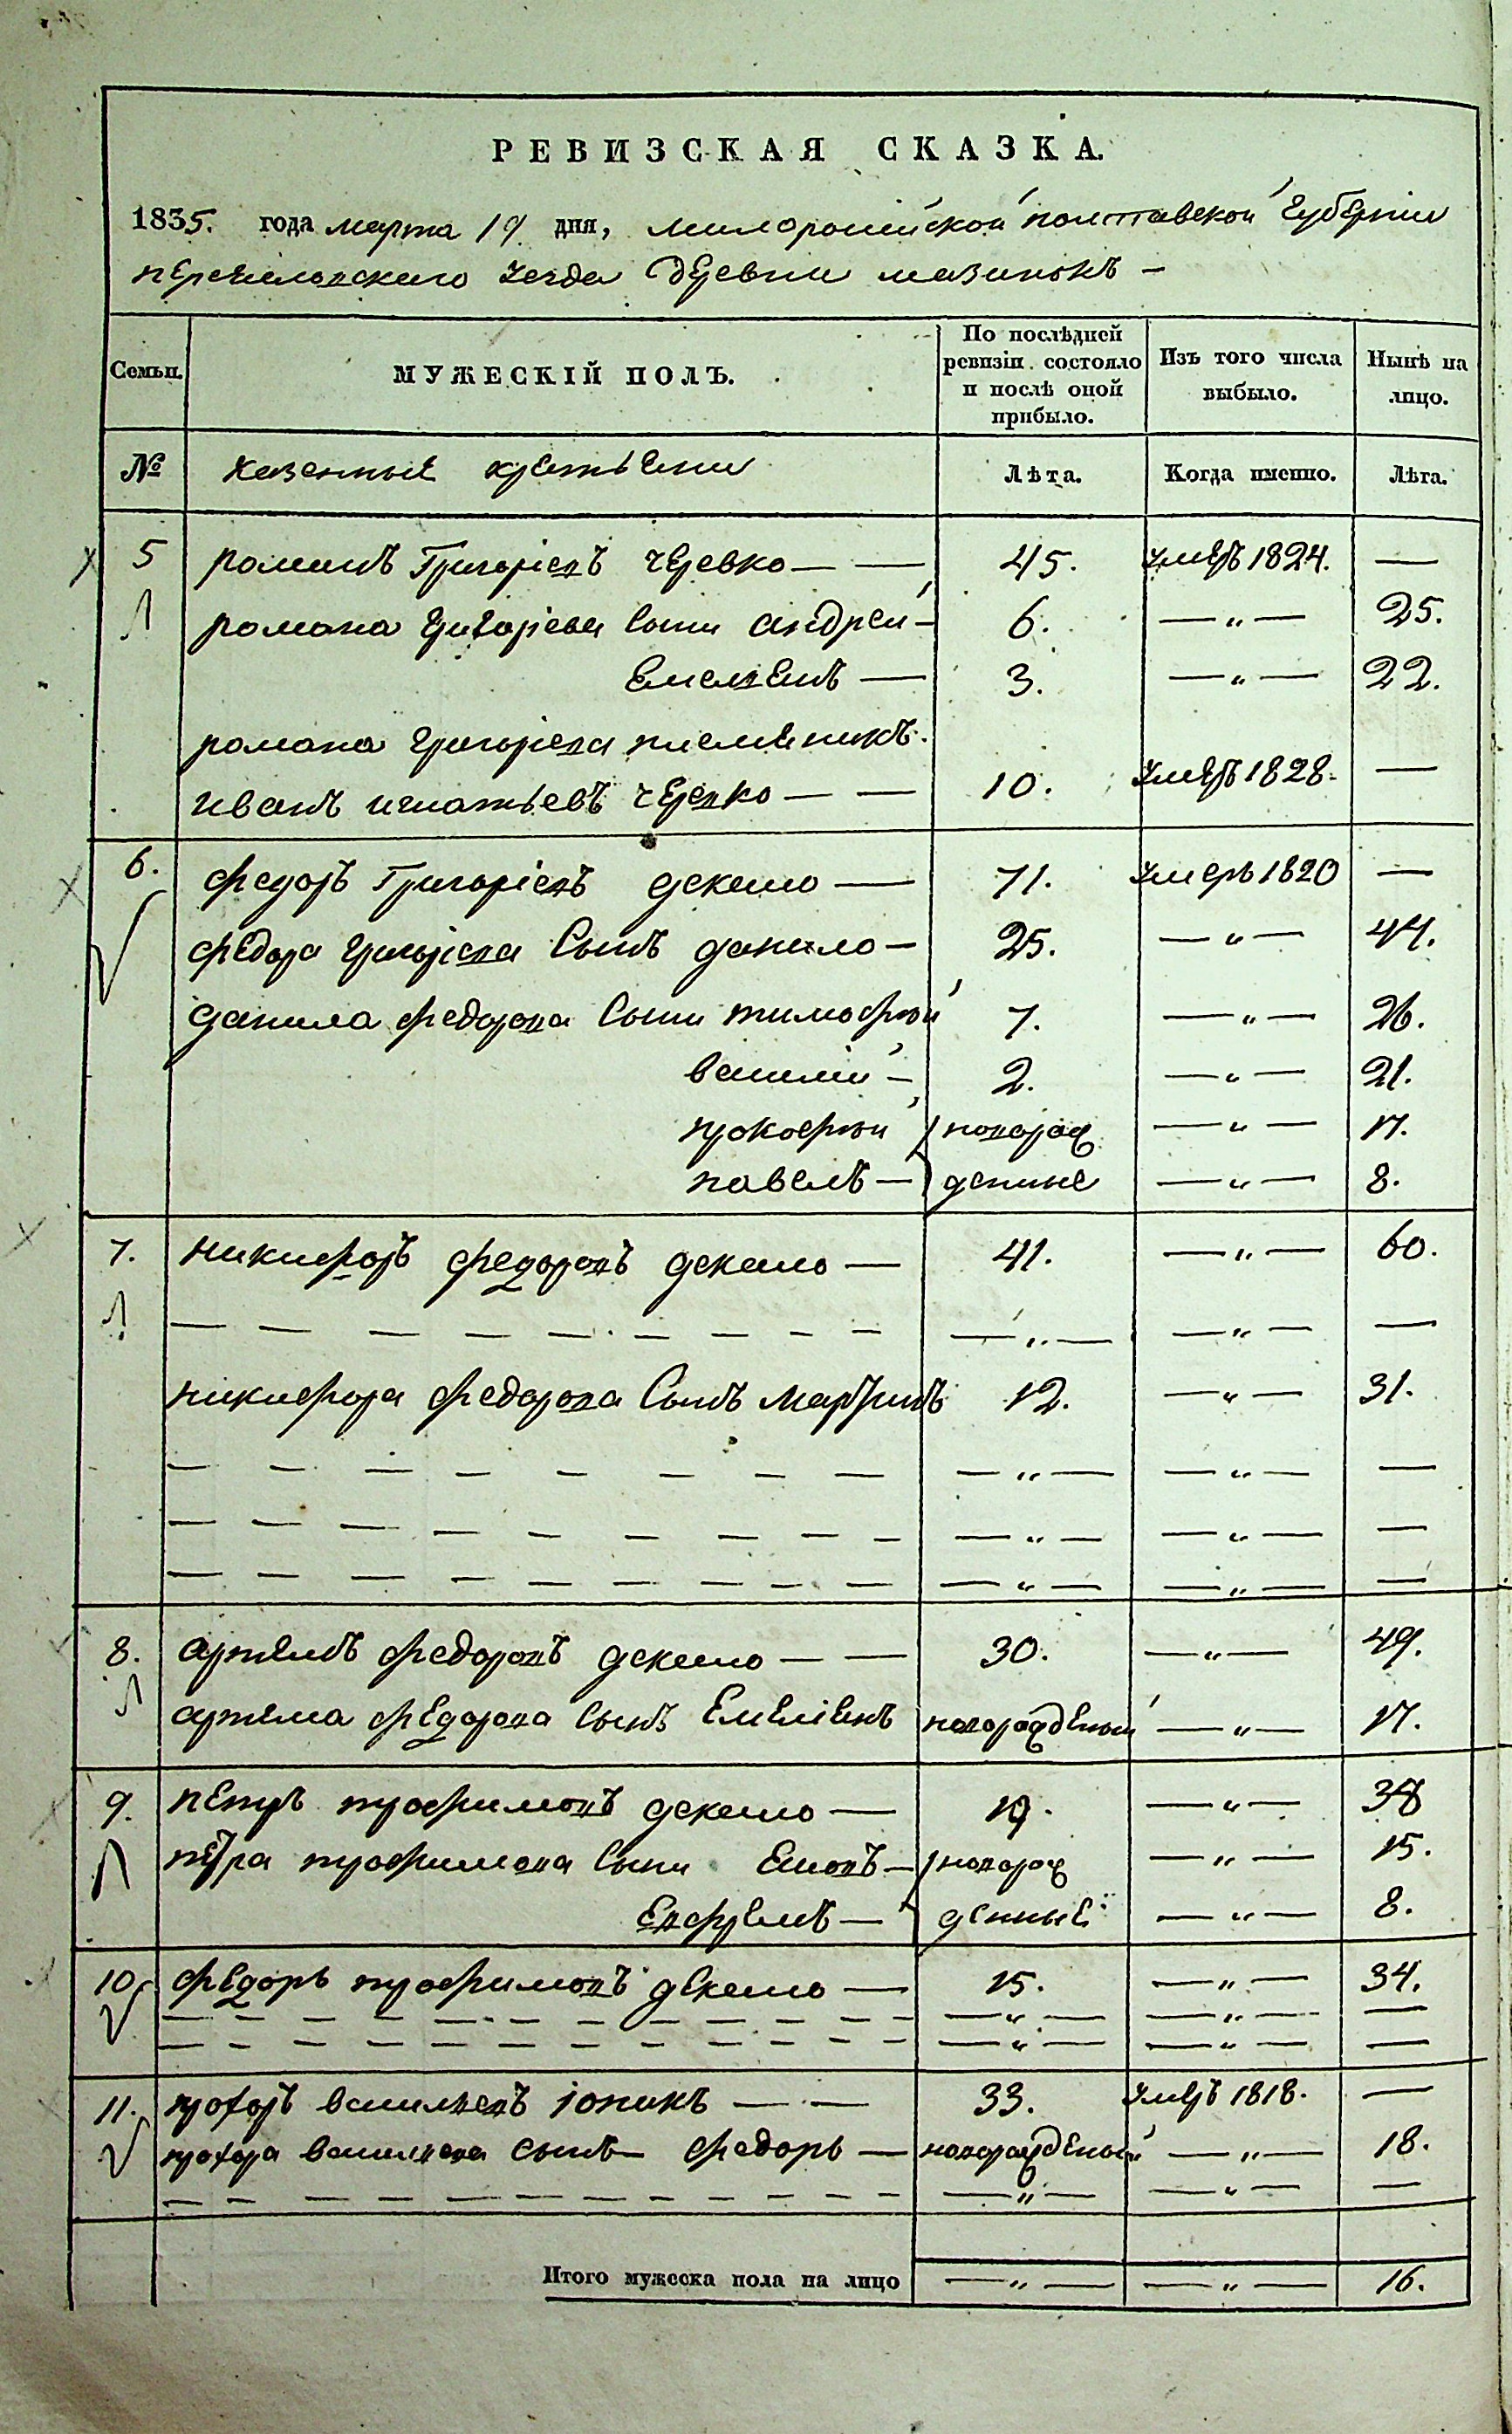 РЕВИЗСКАЯ СКАЗКА.
1835. года марта 19 дня, малоросийской полтавской губернии
переяславскаго уезда деревни мазинокъ —
Семьи. МУЖЕСКІЙ ПОЛЪ. По послѣдней ревизіи состояло и послѣ оной прибыло. Изъ того числа выбыло. Нынѣ на лицо.
№ казенные крестьяни Лѣта. Когда именно. Лѣта.
5 романъ Григоріевъ черевко — — 45. умеръ 1824. —
романа григоріева сыни андрей — 6. — „ — 25.
Емелянъ — 3. — „ — 22.
романа григоріева племеникъ
иванъ игнатьевъ черевко — — 10. умеръ 1828. —
6. федоръ Григоріевъ декало — 71. умеръ 1820 —
федора григоріева сынъ данило — 25. — „ — 44.
данила федорова сыни тимофѣй 7. — „ — 26.
василій — 2. — „ — 21.
прокофѣй новорож — „ — 17.
павелъ — денние — „ — 8.
7. никифоръ федоровъ декало — 41. — „ — 60.
— — — — — — — — — — „ — — „ — —
никифора федорова сынъ мартинъ 12. — „ — 31.
— — — — — — — — — „ — — „ — —
— — — — — — — — — — „ — — „ — —
— — — — — — — — — — „ — — „ — —
8. артемъ федоровъ декало — — 30. — „ — 49.
артема федорова сынъ Емеліянъ новорожденый — „ — 17.
9. петръ трофимовъ декало — 19. — „ — 38
петра трофимова сыни — новорож — „ — 15.
Ефремъ — денные — „ — 8.
10 федоръ трофимовъ декало — 15. — „ — 34.
— — — — — — — — — — — „ — — „ — —
— — — — — — — — — — — „ — — „ — —
11. прохоръ васильевъ — — 33. умеръ 1818. —
прохора васильева сынъ — федоръ — новорожденый — „ — 18.
— — — — — — — — — — — „ — — „ — —
Итого мужеска пола на лицо — „ — — „ — 16.